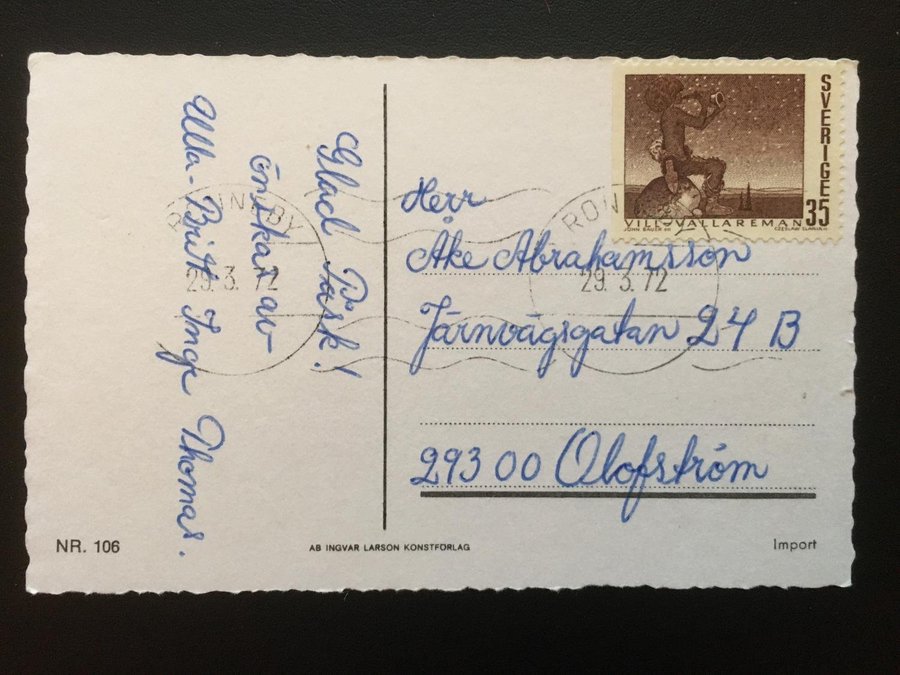 Glad Påsk!
önskar av
Ulla-Britt Inge Thomas.
SVERIGE
35
VILL-VALLAREMAN
JOHN BAUER
CZESLAW SLANIA
RONNEBY
29.3.72
RONNEBY
29.3.72
Herr
Åke Abrahamsson
Järnvägsgatan 24 B
293 00 Olofström
NR. 106
AB INGVAR LARSON KONSTFÖRLAG
Import